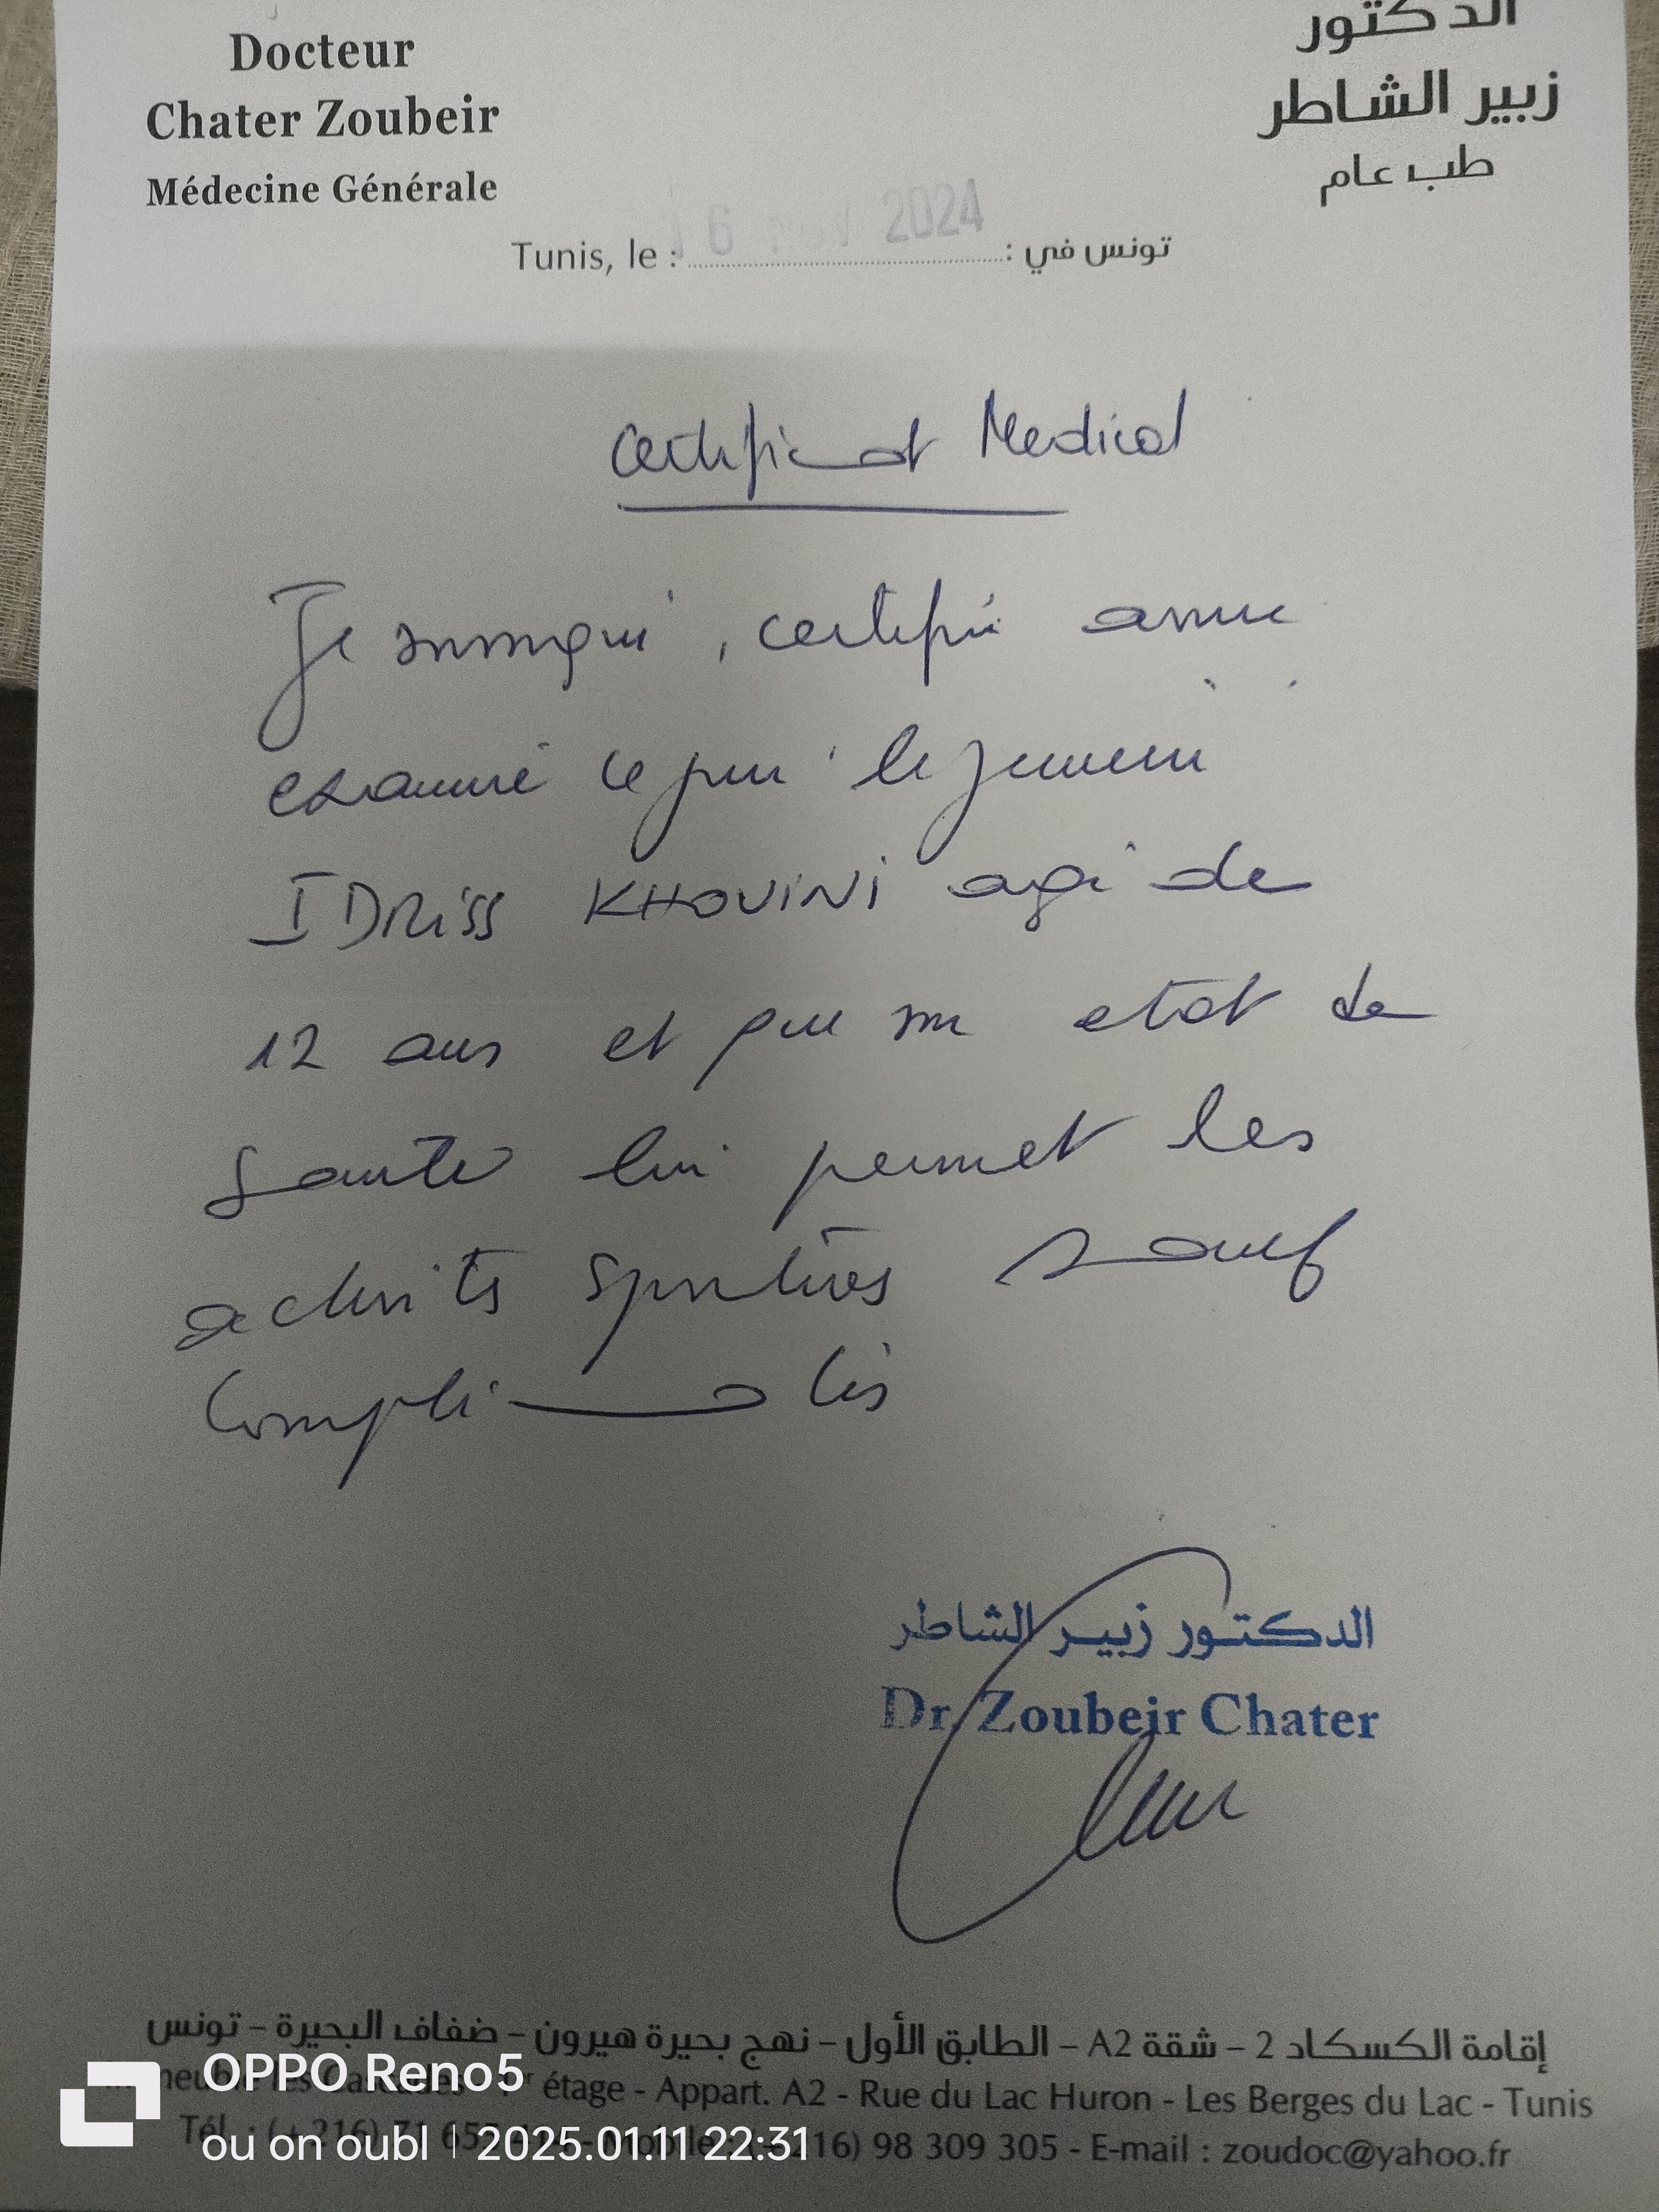 Docteur
Chater Zoubeir
Médecine Générale
الدكتور
زبير الشاطر
طب عام
Tunis, le : 6 nov 2024 : تونس في
Certificat Medical
Je soussigné, certifié avoir
examiné ce jour le jeune
IDRiSS KHOUiNi agé de
12 ans et que son etat de
santé lui permet les
activités sportives sauf
Complications
الدكتور زبير الشاطر
Dr Zoubeir Chater
إقامة الكسكاد 2 - شقة A2 - الطابق الأول - نهج بحيرة هيرون - ضفاف البحيرة - تونس
étage - Appart. A2 - Rue du Lac Huron - Les Berges du Lac - Tunis
98 309 305 - E-mail : zoudoc@yahoo.fr
OPPO Reno5
ou on oubl | 2025.01.11 22:31